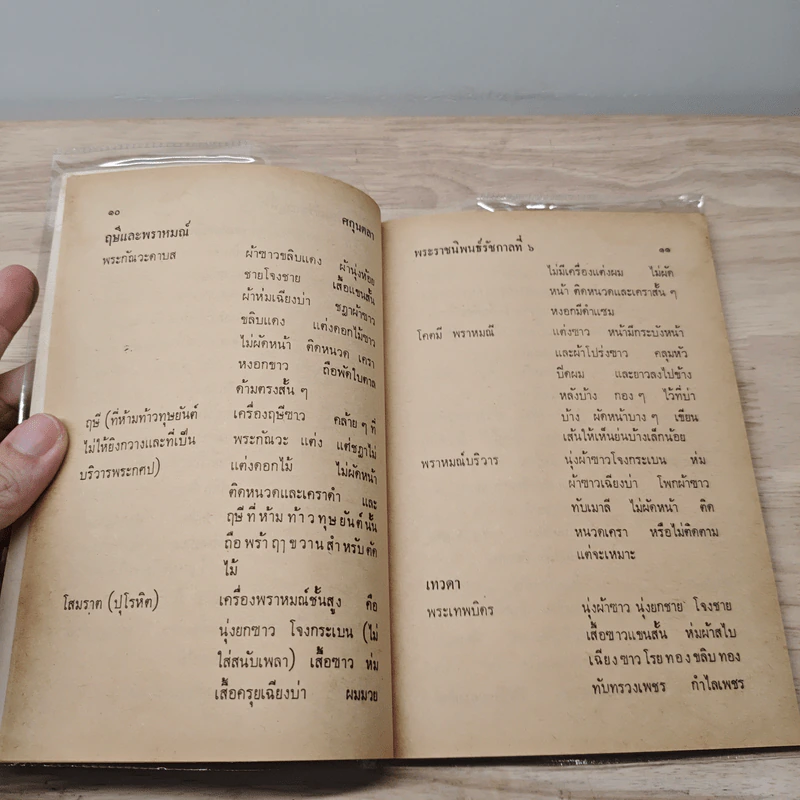 ๑๐
ศกุนตลา
ฤษีและพราหมณ์
พระกัณวะดาบส
ผ้าขาวขลิบแดง ผ้านุ่งห้อย
ชายโจงชาย เสื้อแขนสั้น
ผ้าห่มเฉียงบ่า ชฎาผ้าขาว
ขลิบแดง แต่งดอกไม้ขาว
ไม่ผัดหน้า ติดหนวด เครา
หงอกขาว ถือพัดใบตาล
ด้ามตรงสั้น ๆ
ฤษี (ที่ห้ามท้าวทุษยันต์
ไม่ให้ยิงกวางและที่เป็น
บริวารพระกศป)
เครื่องฤษีขาว คล้าย ๆ ที่
พระกัณวะ แต่ง แต่ชฎาไม่
แต่งดอกไม้ ไม่ผัดหน้า
ติดหนวดและเคราดำ และ
ฤษีที่ห้ามท้าวทุษยันต์นั้น
ถือพร้าฤๅขวานสำหรับตัด
ไม้
โสมราต (ปุโรหิต)
เครื่องพราหมณ์ชั้นสูง คือ
นุ่งยกขาว โจงกระเบน (ไม่
ใส่สนับเพลา) เสื้อขาว ห่ม
เสื้อครุยเฉียงบ่า ผมมวย
พระราชนิพนธ์รัชกาลที่ ๖
๑๑
ไม่มีเครื่องแต่งผม ไม่ผัด
หน้า ติดหนวดและเคราสั้น ๆ
หงอกมีดำแซม
โคตมี พราหมณี
แต่งขาว หน้ามีกระบังหน้า
และผ้าโปร่งขาว คลุมหัว
ปิดผม และยาวลงไปข้าง
หลังบ้าง กอง ๆ ไว้ที่บ่า
บ้าง ผัดหน้าบาง ๆ เขียน
เส้นให้เห็นย่นบ้างเล็กน้อย
พราหมณ์บริวาร
นุ่งผ้าขาวโจงกระเบน ห่ม
ผ้าขาวเฉียงบ่า โพกผ้าขาว
ทับเมาลี ไม่ผัดหน้า ติด
หนวดเครา หรือไม่ติดตาม
แต่จะเหมาะ
เทวดา
พระเทพบิดร
นุ่งผ้าขาว นุ่งยกชาย โจงชาย
เสื้อขาวแขนสั้น ห่มผ้าสไบ
เฉียงขาวโรยทองขลิบทอง
ทับทรวงเพชร กำไลเพชร